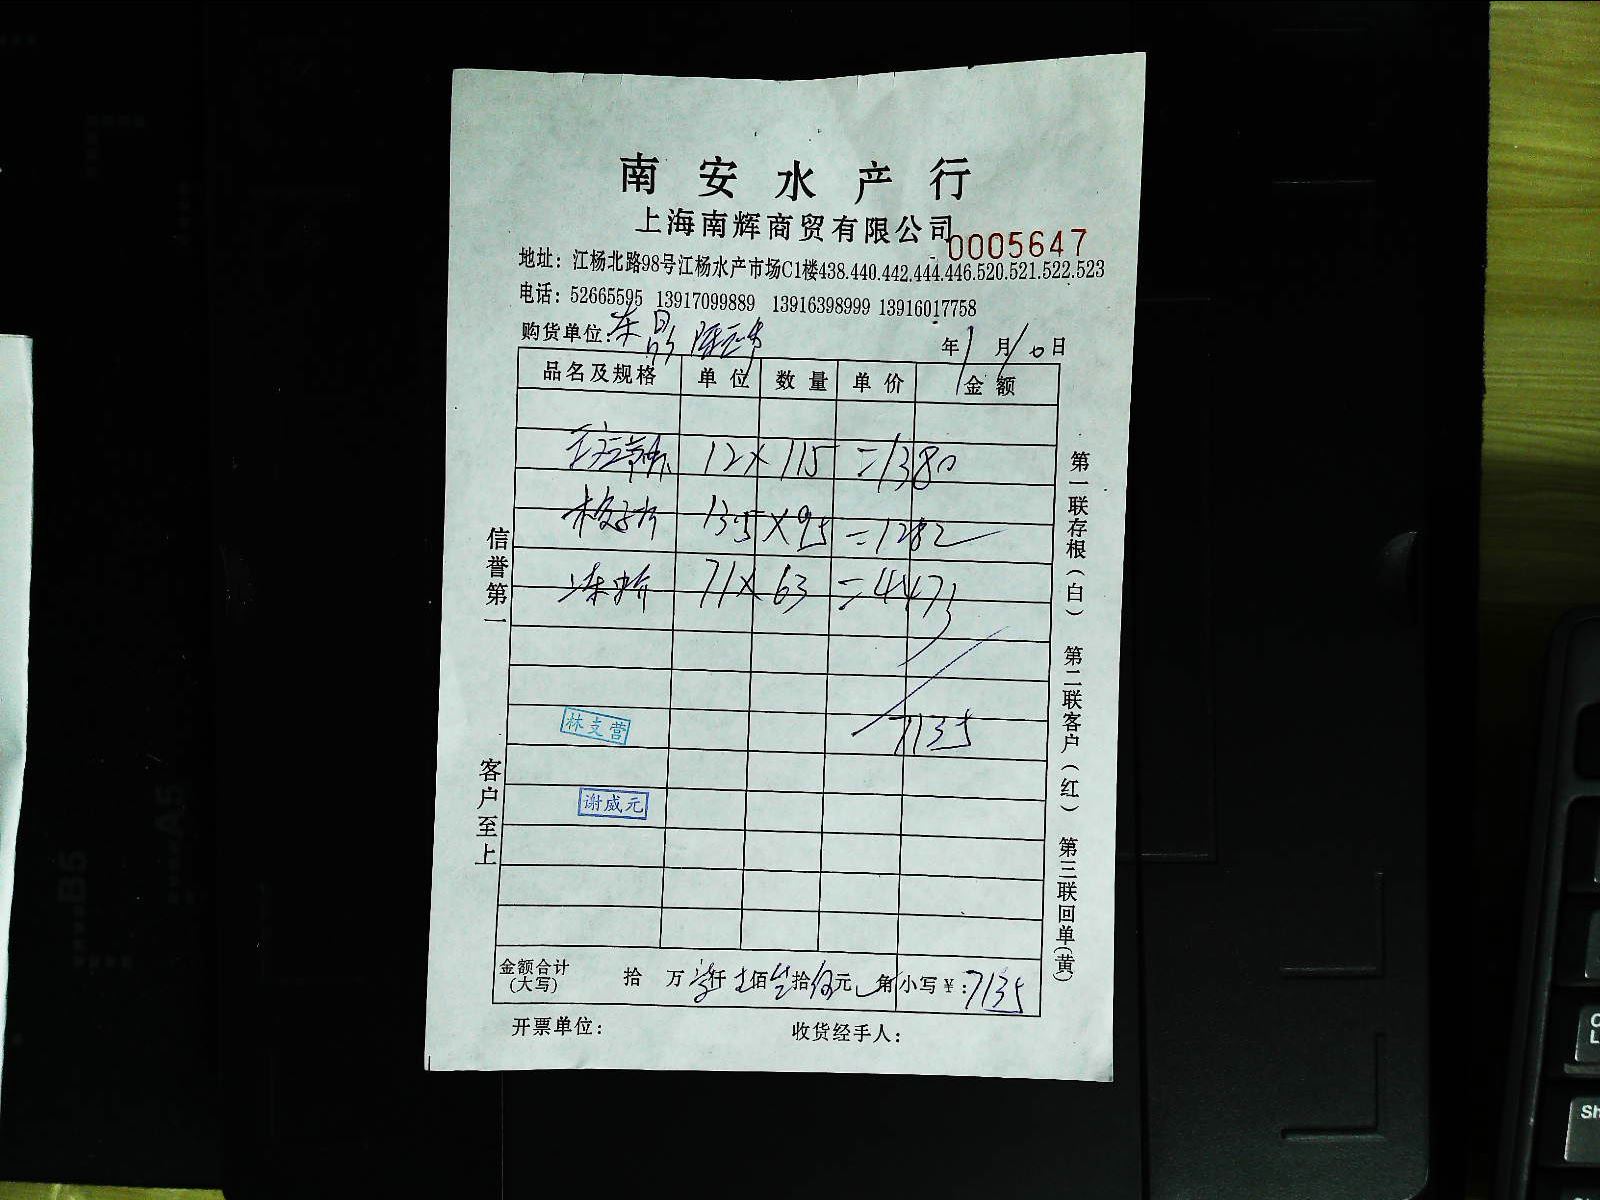 南安水产行
上海南辉商贸有限公司
0005647
地址：江杨北路98号江杨水产市场C1楼438.440.442.444.446.520.521.522.523
电话：52665595 13917099889 13916398999 13916017758
购货单位：
年1月10日
品名及规格 单位 数量 单价 金额
12×115=1380
135×95=1282
71×63=4473
7135
林支营
谢威元
金额合计（大写） 拾 万 柒仟 壹佰 叁拾 伍元 角 小写￥：7135
开票单位： 收货经手人：
信誉第一
客户至上
第一联存根（白） 第二联客户（红） 第三联回单（黄）
B5
A5